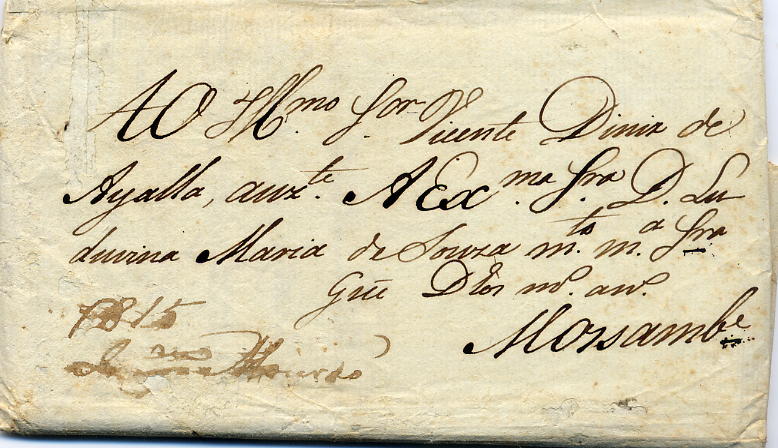 AO Illmo. Sor. Vicente Diniz de
Ayalla, auzte. A Exma. Sra D. Lu
duvina Maria de Souza mts. ma. Sra
Gue Ds. ms. ans.
Mossambe.
1815